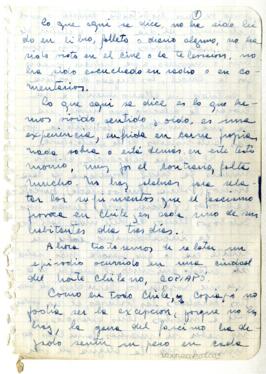 1
Lo que aquí se dice, no ha sido leí
do en libro, folleto o diario alguno, no ha
sido visto en el cine o la television, no
ha sido escuchado en radio o en co
mentarios.
Lo que aquí se dice es lo que he
mos vivido sentido y oido, es una
experiencia, sufrida en carne propia
nada sobra o está demas en este testi
monio, muy por el contrario, falta
mucho. No hay palabras para rela
tar los sufrimientos que el fascismo
provoca en Chile, en cada uno de sus
habitantes dia tras dia.
Ahora trataremos de relatar un
episodio ocurrido en una ciudad
del norte chileno, COPIAPÓ
Como en todo Chile, Copiapó no
podia ser la excepcion, porque no la
hay, la garra del fascismo ha de
jado sentir su peso en cada